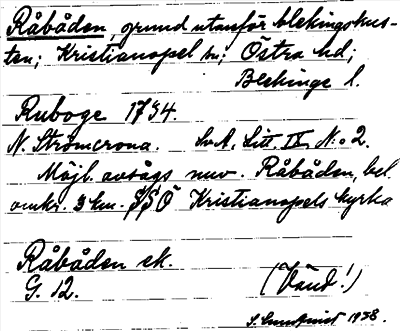 Råbåden, grund utanför blekingekus-
ten; Kristianopel sn; Östra hd;
Blekinge l.
Ruboge 1734.
N. Strömcrona. SvA. Litt. IX N:o 2.
Möjl. avsågs nuv. Råbåden, bel.
omkr. 3 km. SSÖ Kristianopels kyrka
Råbåden ek.
G. 12. (Vänd!)
S. 1938.